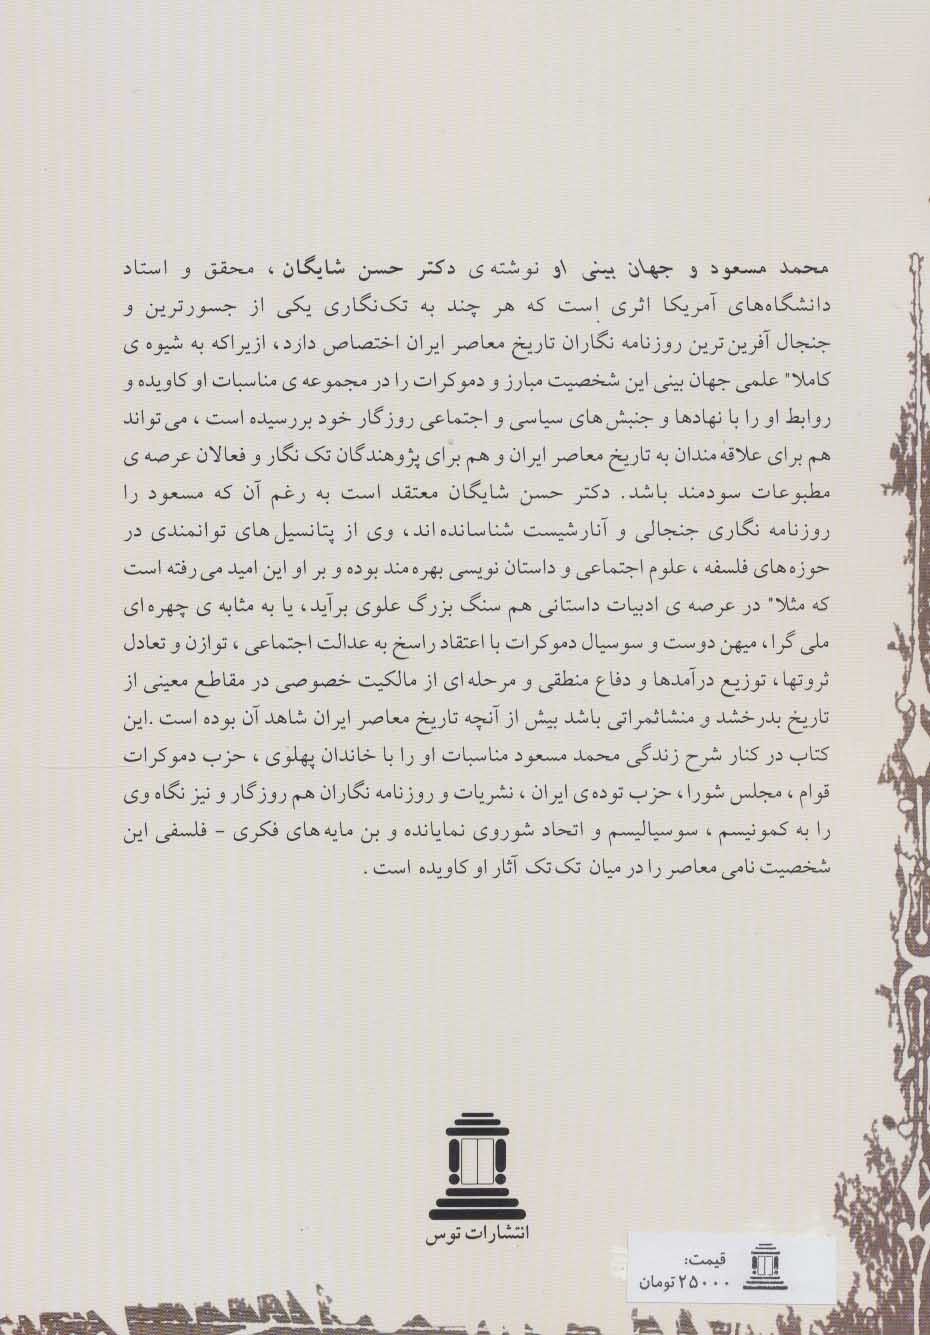 محمد مسعود و جهان بینی او نوشته ی دکتر حسن شایگان ، محقق و استاد
دانشگاه‌های آمریکا اثری است که هر چند به تک‌نگاری یکی از جسورترین و
جنجال آفرین ترین روزنامه نگاران تاریخ معاصر ایران اختصاص دارد، ازیراکه به شیوه ی
کاملا" علمی جهان بینی این شخصیت مبارز و دموکرات را در مجموعه ی مناسبات او کاویده و
روابط او را با نهادها و جنبش های سیاسی و اجتماعی روزگار خود بررسیده است ، می تواند
هم برای علاقه مندان به تاریخ معاصر ایران و هم برای پژوهندگان تک نگار و فعالان عرصه ی
مطبوعات سودمند باشد. دکتر حسن شایگان معتقد است به رغم آن که مسعود را
روزنامه نگاری جنجالی و آنارشیست شناسانده اند، وی از پتانسیل های توانمندی در
حوزه های فلسفه ، علوم اجتماعی و داستان نویسی بهره مند بوده و بر او این امید می رفته است
که مثلا" در عرصه ی ادبیات داستانی هم سنگ بزرگ علوی برآید، یا به مثابه ی چهره ای
ملی گرا، میهن دوست و سوسیال دموکرات با اعتقاد راسخ به عدالت اجتماعی ، توازن و تعادل
ثروتها، توزیع درآمدها و دفاع منطقی و مرحله ای از مالکیت خصوصی در مقاطع معینی از
تاریخ بدرخشد و منشاثمراتی باشد بیش از آنچه تاریخ معاصر ایران شاهد آن بوده است .این
کتاب در کنار شرح زندگی محمد مسعود مناسبات او را با خاندان پهلوی ، حزب دموکرات
قوام ، مجلس شورا، حزب توده ی ایران ، نشریات و روزنامه نگاران هم روزگار و نیز نگاه وی
را به کمونیسم ، سوسیالیسم و اتحاد شوروی نمایانده و بن مایه های فکری - فلسفی این
شخصیت نامی معاصر را در میان تک تک آثار او کاویده است .
انتشارات توس
قیمت:
۲۵۰۰۰ تومان